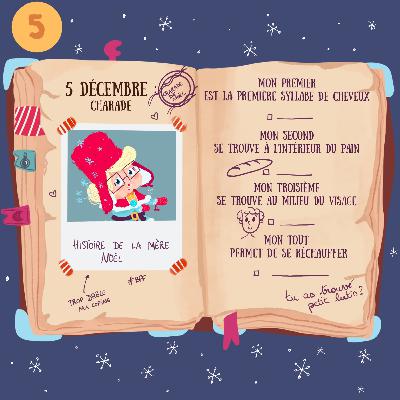 5
5 DÉCEMBRE
CHARADE
HISTOIRE DE LA MÈRE
NOËL
#BFF
TROP DRÔLE
MA COPINE
MON PREMIER
EST LA PREMIÈRE SYLLABE DE CHEVEUX
MON SECOND
SE TROUVE À L'INTÉRIEUR DU PAIN
MON TROISIÈME
SE TROUVE AU MILIEU DU VISAGE
MON TOUT
PERMET DE SE RÉCHAUFFER
tu as trouvé
petit lutin ?